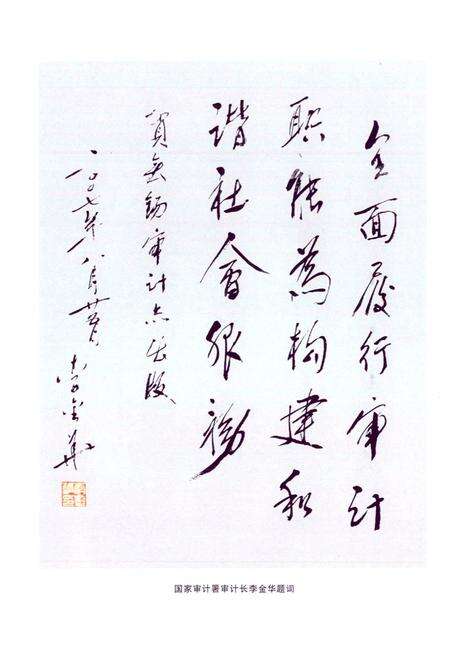 全面履行审计
职能為构建和
谐社會服務
賀無錫审计志出版
二〇〇七年八月廿五日
李金华
国家审计署审计长李金华题词